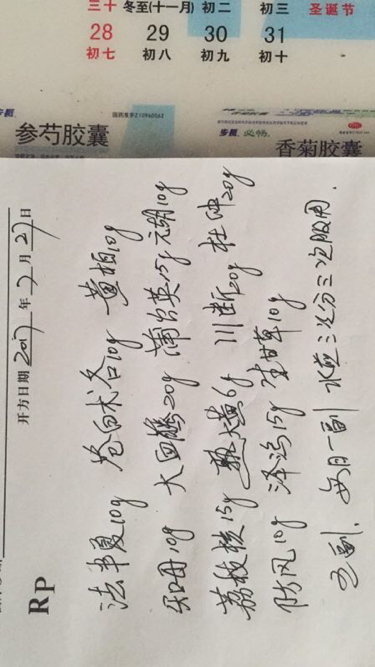 三十 冬至(十一月) 初二 初三 圣诞节
28 29 30 31
初七 初八 初九 初十
步长 参芍胶囊
步长 必畅 香菊胶囊
开方日期 2017 年 2 月 27 日
RP
法半夏10g 苍白术各10g 黄柏10g
知母10g 大血藤20g 蒲公英15g 元胡10g
荔枝核15g 熟大黄6g 川断20g 杜仲20g
防风10g 泽泻15g 生甘草10g
五副、每日一副 水煎三次分三次服用.